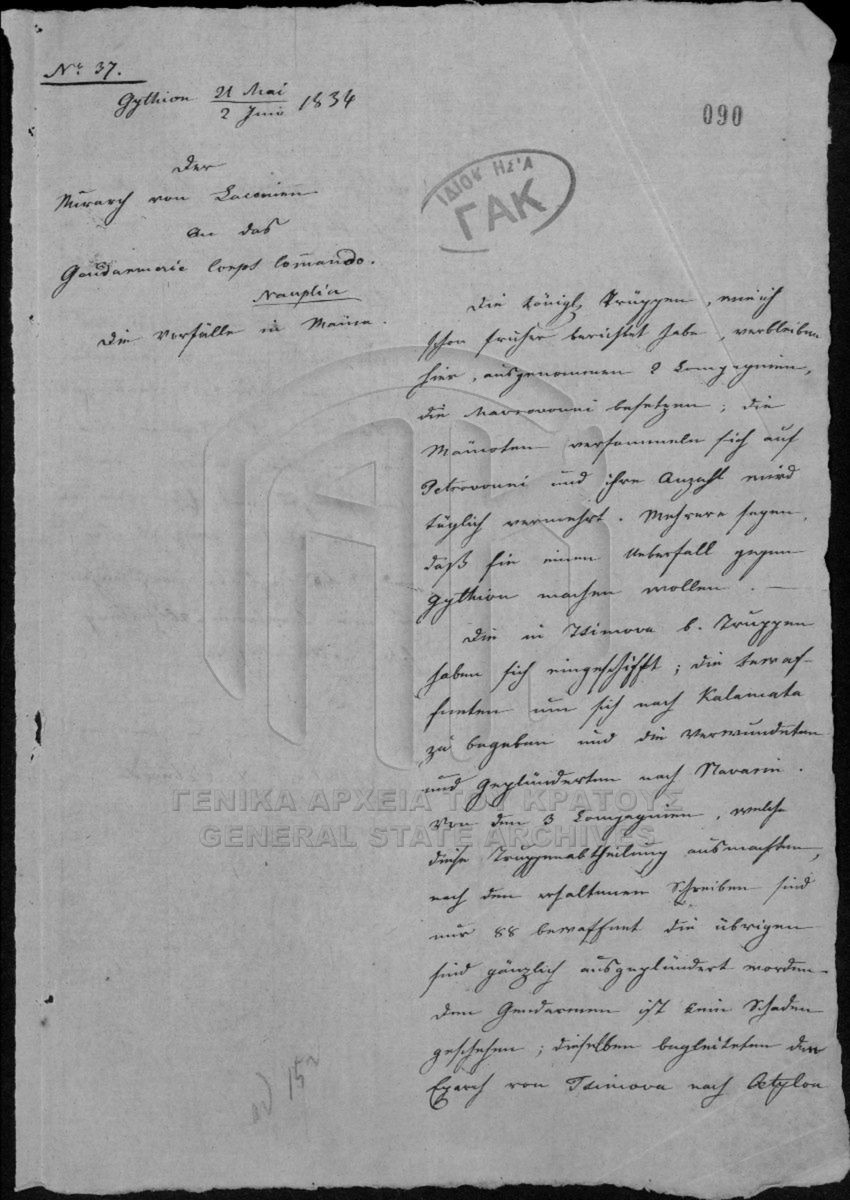 Nr 37.
Gythion 21 Mai / 2 Juni 1834
090
ΙΔΙΟΚ ΗΣΊΑ
ΓΑΚ
Der
Nomarch von Laconien
An das
Gendarmerie Corps Commando.
Nauplia
Die Vorfälle in Maina.
Die königl. Truppen, wie ich
schon früher berichtet habe, verbleiben
hier, ausgenommen 2 Compagnien,
die Mavrovouni besetzen; die
Mainoten versammeln sich auf
Petrovouni und ihre Anzahl wird
täglich vermehrt. Mehrere sagen,
daß sie einen Ueberfall gegen
Gythion machen wollen. —
Die in Tsimova b. Truppen
haben sich eingeschifft; die bewaf-
fneten um sich nach Kalamata
zu begeben und die Verwundeten
und Geplünderten nach Navarin.
Von den 3 Compagnien, welche
diese Truppenabtheilung ausmachten,
nach den erhaltenen Schreiben sind
nur 88 bewaffnet die übrigen
sind gänzlich ausgeplündert worden.
Den Gendarmen ist kein Schaden
geschehen; dieselben begleiteten den
Eparch von Tsimova nach Oetylon
ad 15
ΓΕΝΙΚΑ ΑΡΧΕΙΑ ΤΟΥ ΚΡΑΤΟΥΣ
GENERAL STATE ARCHIVES